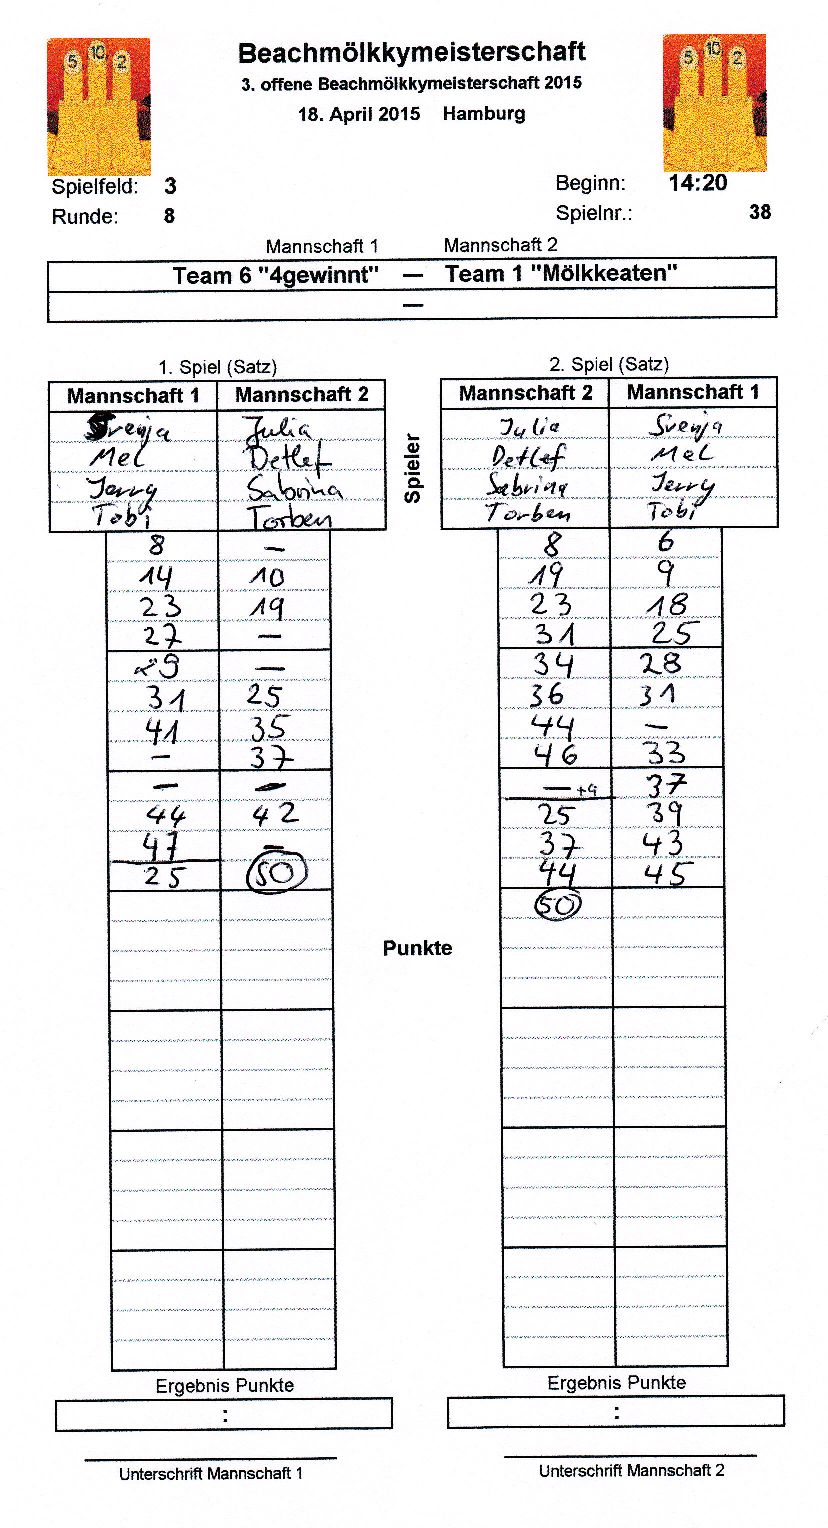 5 10 2
5 10 2
Beachmölkkymeisterschaft
3. offene Beachmölkkymeisterschaft 2015
18. April 2015 Hamburg
Spielfeld: 3 Beginn: 14:20
Runde: 8 Spielnr.: 38
Mannschaft 1 Mannschaft 2
Team 6 "4gewinnt" — Team 1 "Mölkkeaten"
—
1. Spiel (Satz) 2. Spiel (Satz)
Mannschaft 1 Mannschaft 2 Mannschaft 2 Mannschaft 1
Spieler
Svenja Julia Julia Svenja
Mel Detlef Detlef Mel
Jerry Sabrina Sabrina Jerry
Tobi Torben Torben Tobi
8 – 8 6
14 10 19 9
23 19 23 18
27 – 31 25
29 – 34 28
31 25 36 31
41 35 44 –
– 37 46 33
– – – +9 37
44 42 25 39
47 – 37 43
25 50 44 45
50
Punkte
Ergebnis Punkte Ergebnis Punkte
: :
Unterschrift Mannschaft 1 Unterschrift Mannschaft 2